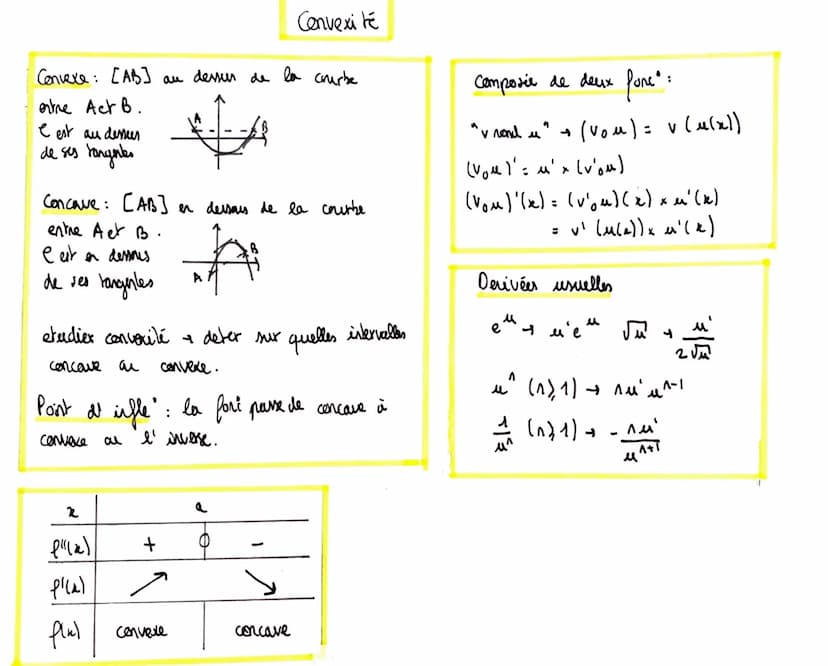 Convexité
Convexe : [AB] au dessus de la courbe
entre A et B.
C est au dessus
de ses tangentes
A
B
Concave : [AB] en dessous de la courbe
entre A et B.
C est en dessous
de ses tangentes
A
B
etudier convexité → deter sur quelles intervalles
concave ou convexe.
Point d'infle° : la fonc passe de concave à
convexe ou l'inverse.
Composée de deux fonc° :
"v rond u" → (v∘u) = v(u(x))
(v∘u)' = u' × (v'∘u)
(v∘u)'(x) = (v'∘u)(x) × u'(x)
= v'(u(x)) × u'(x)
Derivées usuelles
e^u → u'e^u √u → u'/2√u
u^n (n⩾1) → nu'u^n-1
1/u^n (n⩾1) → - nu'/u^n+1
x a
f''(x) + 0 -
f'(x) ↗ ↘
f(x) convexe concave